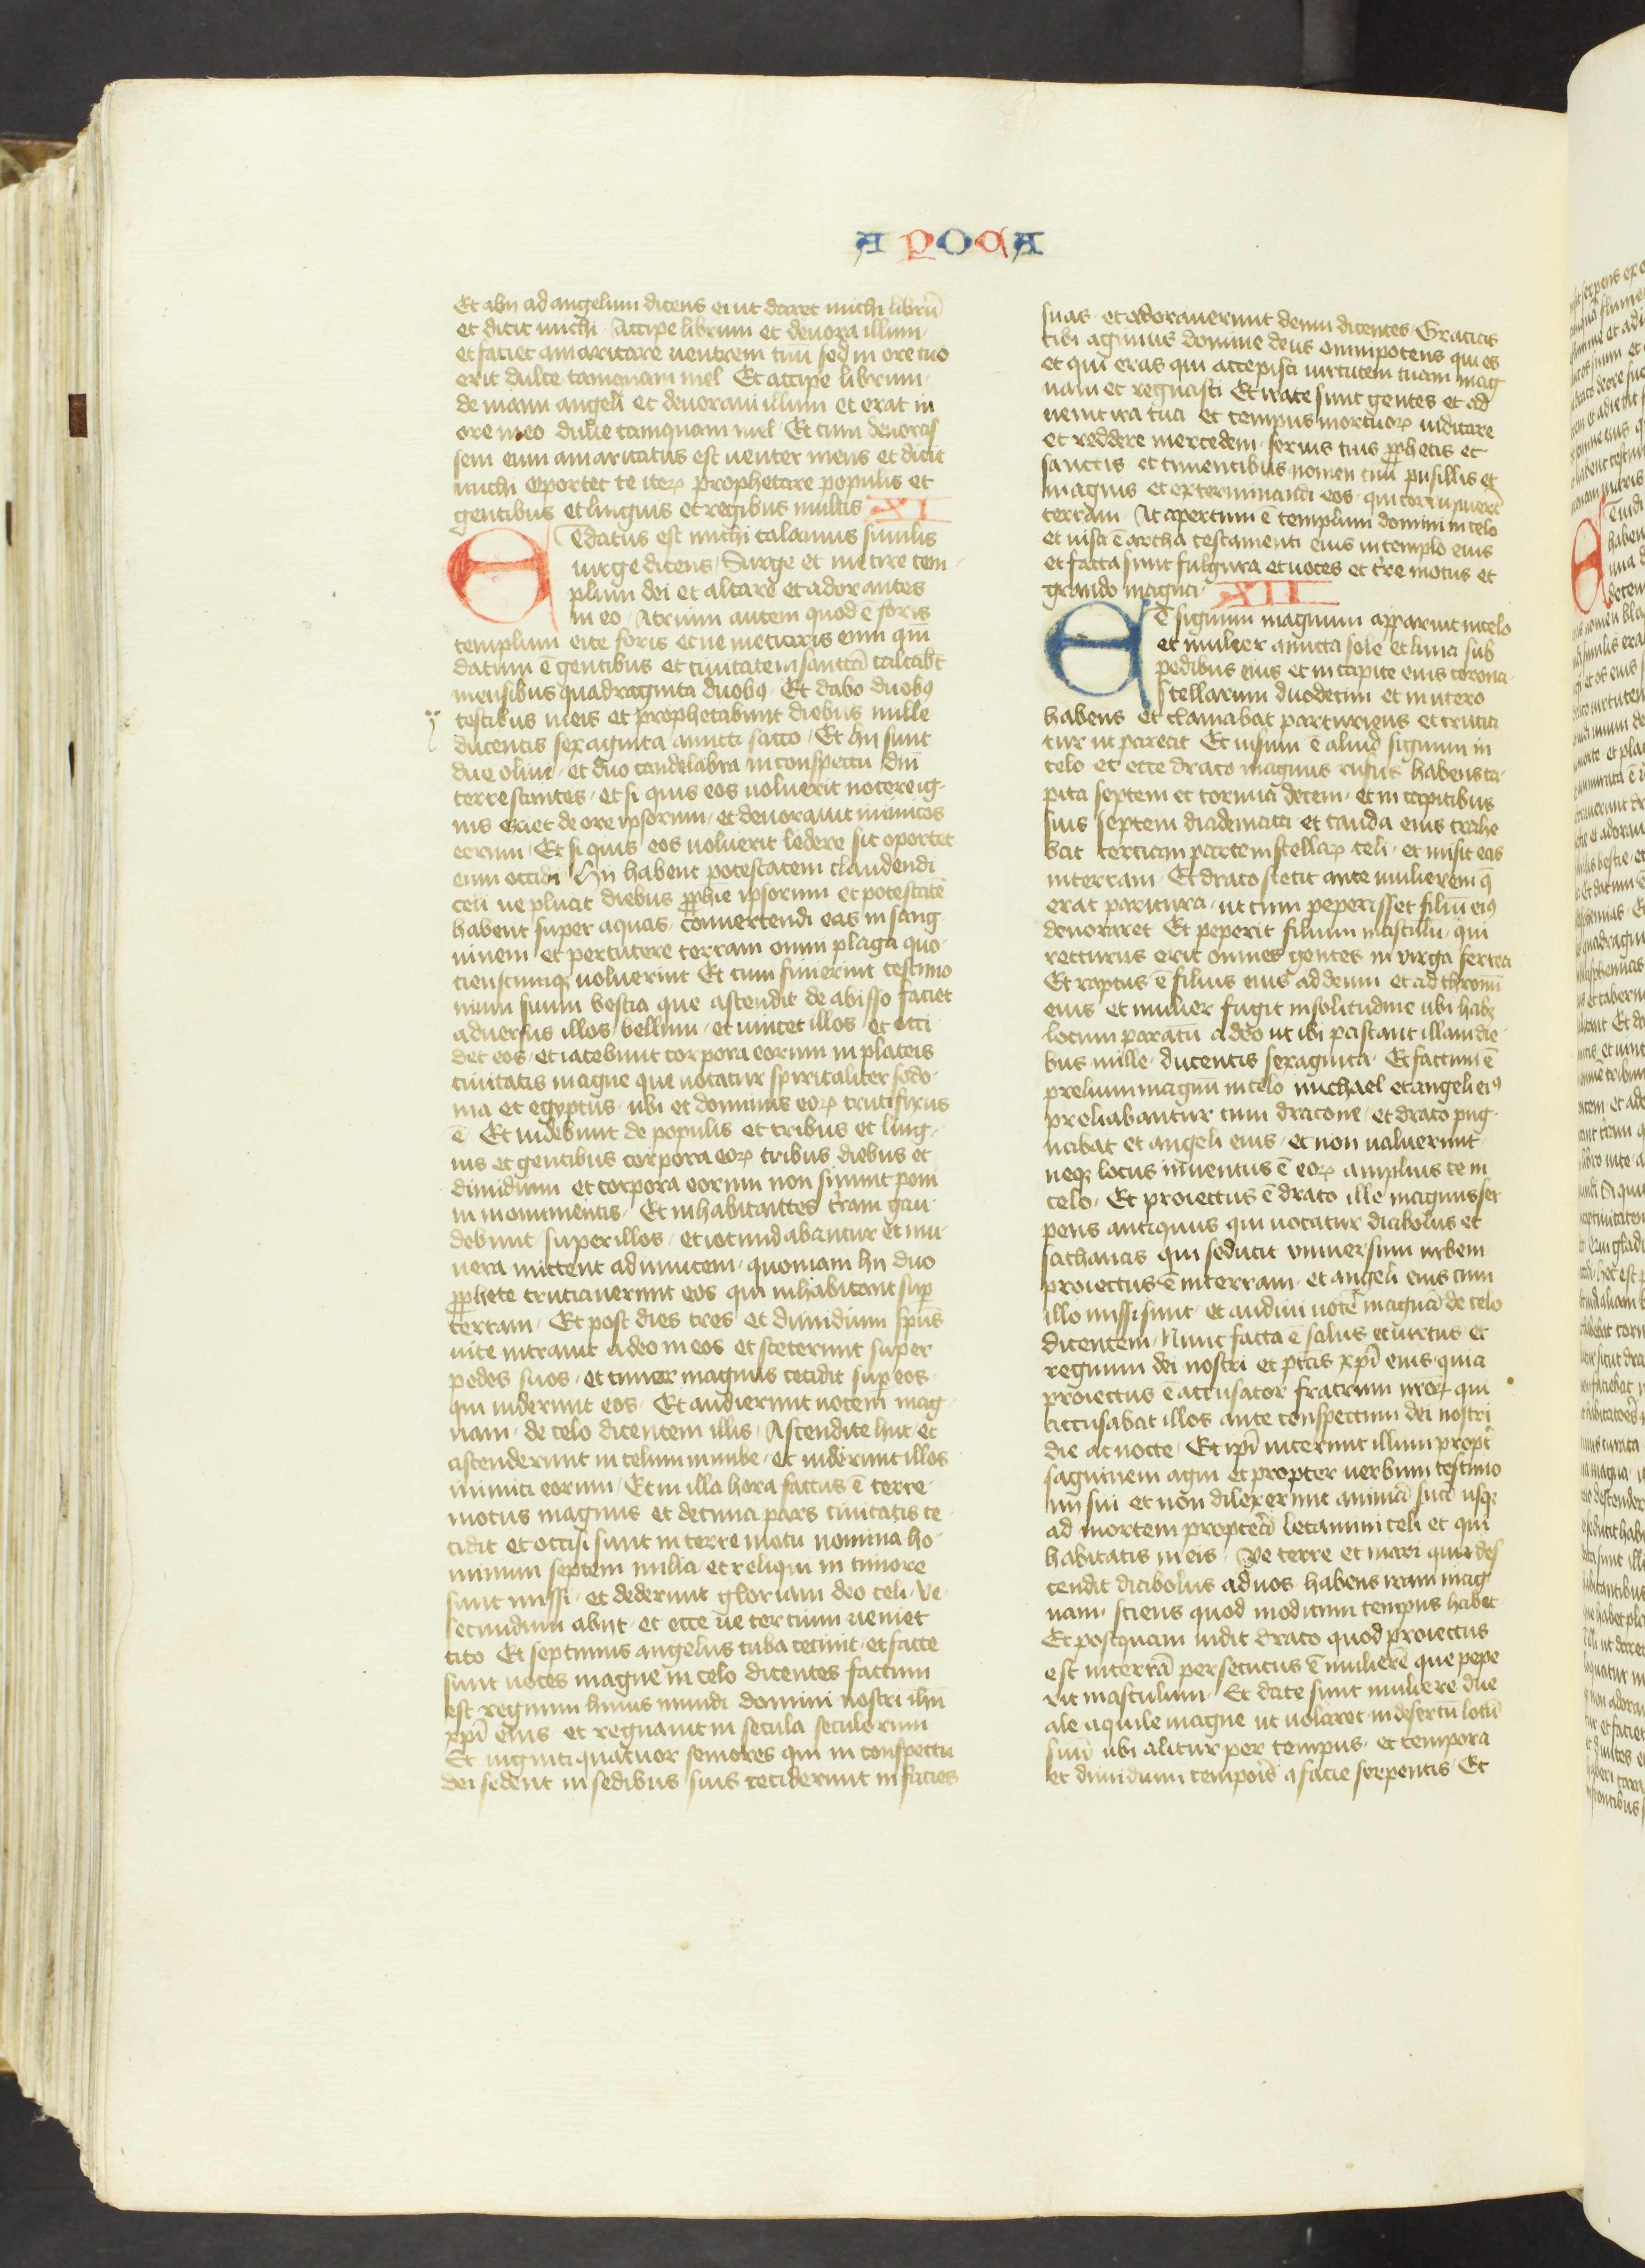 APOCA
Et abij ad angelum dicens ei ut daret michi librū
et dicit michi Accipe librum et devora illum
et faciet amaricare uentrem tuū sed in ore tuo
erit dulce tamquam mel Et accipe librum
de manu angeli et devoravi illum et erat in
ore meo dulce tamquam mel Et cum devoras
sem eum amaricatus est uenter meus et dicit
michi Oportet te iteꝝ prophetare populis et
gentibus et linguis et regibus multis XI
Et datus est michi calamus similis
uirge dicens Surge et metire tem
plum dei et altare et adorantes
in eo Atrium autem quod ē foris
templum eice foris et ne metiaris eum qm̄
datum ē gentibus et ciuitatem sanctā calcabūt
mensibus quadraginta duobꝰ Et dabo duobꝰ
testibus meis et prophetabunt diebus mille
ducentis sexaginta amicti sacco Et hij sunt
due oliue et duo candelabra in conspectu dnī
terre stantes et si quis eos uoluerit nocere ig
nis exiet de ore ipsorum et devorauit inimicos
eorum Et si quis eos uoluerit ledere sic oportet
eum occidi Hij habent potestatem claudendi
celi ne pluat diebus ꝓphīe ipsorum et potestatē
habent super aquas convertendi eas in sang
uinem et percutere terram omni plaga quo
cienscumqꝫ uoluerint Et cum finierint testimo
nium suum bestia que ascendit de abisso faciet
adversus illos bellum et uincet illos et occi
det eos et iacebunt corpora eorum in plateis
ciuitatis magne que uocatur spiritaliter sodo
ma et egyptus ubi et dominus eoꝝ crucifixus
ē Et uidebunt de populis et tribus et ling
uis et gentibus corpora eoꝝ tribus diebus et
dimidium et corpora eorum non sinunt poni
in monumentis Et inhabitantes tr̄am gau
debunt super illos et iocundabuntur et mu
nera mittent ad inuicem quoniam hij duo
ꝓphete cruciauerunt eos qui inhabitant suꝑ
terram Et post dies tres et dimidium spūs
uite intrauit a deo in eos et steterunt super
pedes suos et timor magnus cecidit suꝑ eos
qui uiderunt eos Et audierunt uocem mag
nam de celo dicentem illis Ascendite huc et
ascenderunt in celum in nube et uiderunt illos
inimici eorum Et in illa hora factus ē terre
motus magnus et decima pars ciuitatis ce
cidit et occisi sunt in terre motu nomina ho
minum septem milia et reliqui in timore
sunt missi et dederunt gloriam deo celi Ve
secundum abijt et ecce ue tercium ueniet
cito Et septimus angelus tuba cecinit et facte
sunt uoces magne in celo dicentes factum
est regnum huius mundi domini nostri ihū
xpī eius et regnauit in secula seculorum
Et uiginti quatuor seniores qui in conspectu
dei sedent in sedibus suis ceciderunt in facies
suas et adorauerunt deum dicentes Gracias
tibi agimus domine deus omnipotens qui es
et qui eras qui accepisti uirtutem tuam mag
nam et regnasti Et irate sunt gentes et ad
uenit ira tua et tempus mortuoꝝ iudicare
et reddere mercedem seruis tuis ꝓphetis et
sanctis et timentibus nomen tuū pusillis et
magnis et exterminandi eos qui corruperūt
terram At apertum ē templum domini in celo
et uisa ē archa testamenti eius in templo eius
et facta sunt fulgura et uoces et tr̄e motus et
grando magna XII
Et signum magnum apparuit in celo
et mulier amicta sole et luna sub
pedibus eius et in capite eius corona
stellarum duodecim et in utero
habens et clamabat parturiens et crucia
tur ut pareat Et uisum ē aliud signum in
celo et ecce draco magnus rufus habens ca
pita septem et cornua decem et in capitibus
suis septem diademata et cauda eius trahe
bat terciam partem stellaꝝ celi et misit eas
in terram Et draco stetit ante mulierem q̄
erat paritura ut cum peperisset filiū eiꝰ
devoraret Et peperit filium masculū qui
recturus erit omnes gentes in virga ferrea
Et raptus ē filius eius ad deum et ad thronū
eius et mulier fugit in solitudine ubi habꝫ
locum paratū a deo ut ibi pascant illam die
bus mille ducentis sexaginta Et factum ē
prelium magnū in celo michael et angeli eiꝰ
preliabantur cum dracone et draco pug
nabat et angeli eius et non ualuerunt
neqꝫ locus inuentus ē eoꝝ amplius ce in
celo Et proiectus ē draco ille magnus ser
pens antiquus qui uocatur diabolus et
sathanas qui seducit vniuersum urbem
proiectus ē in terram et angeli eius cum
illo missi sunt et audiui uocē magnā de celo
dicentem Nunc facta ē salus et uirtus et
regnum dei nostri et ptās xpī eius quia
proiectus ē accusator fratrum nr̄oꝝ qui
accusabat illos ante conspectum dei nostri
die ac nocte Et ipī uicerunt illum propt̄
saguinem agni et propter uerbum testimo
nij sui et non dilexerunt animā suā usqꝫ
ad mortem propterā letamini celi et qui
habitatis in eis Ve terre et mari quia des
cendit diabolus ad uos habens iram mag
nam sciens quod modicum tempus habet
Et postquam uidit draco quod proiectus
est in terrā persecutus ē mulierē que pepe
rit masculum Et date sunt muliere due
ale aquile magne ut uolaret in desertū locū
suū ubi alitur per tempus et tempora
et dimidium temporis a facie serpentis Et